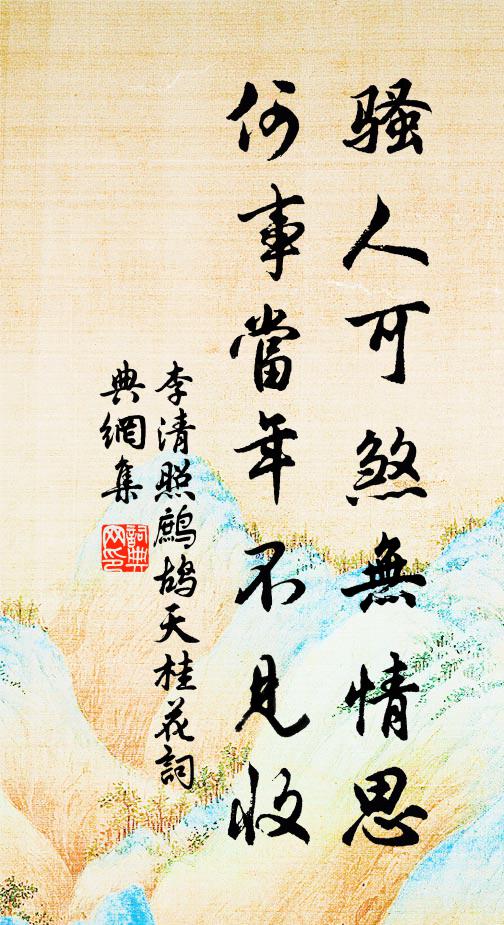 騷人可煞無情思
何事當年不見收
李清照鷓鴣天桂花詞
典網集
詞典